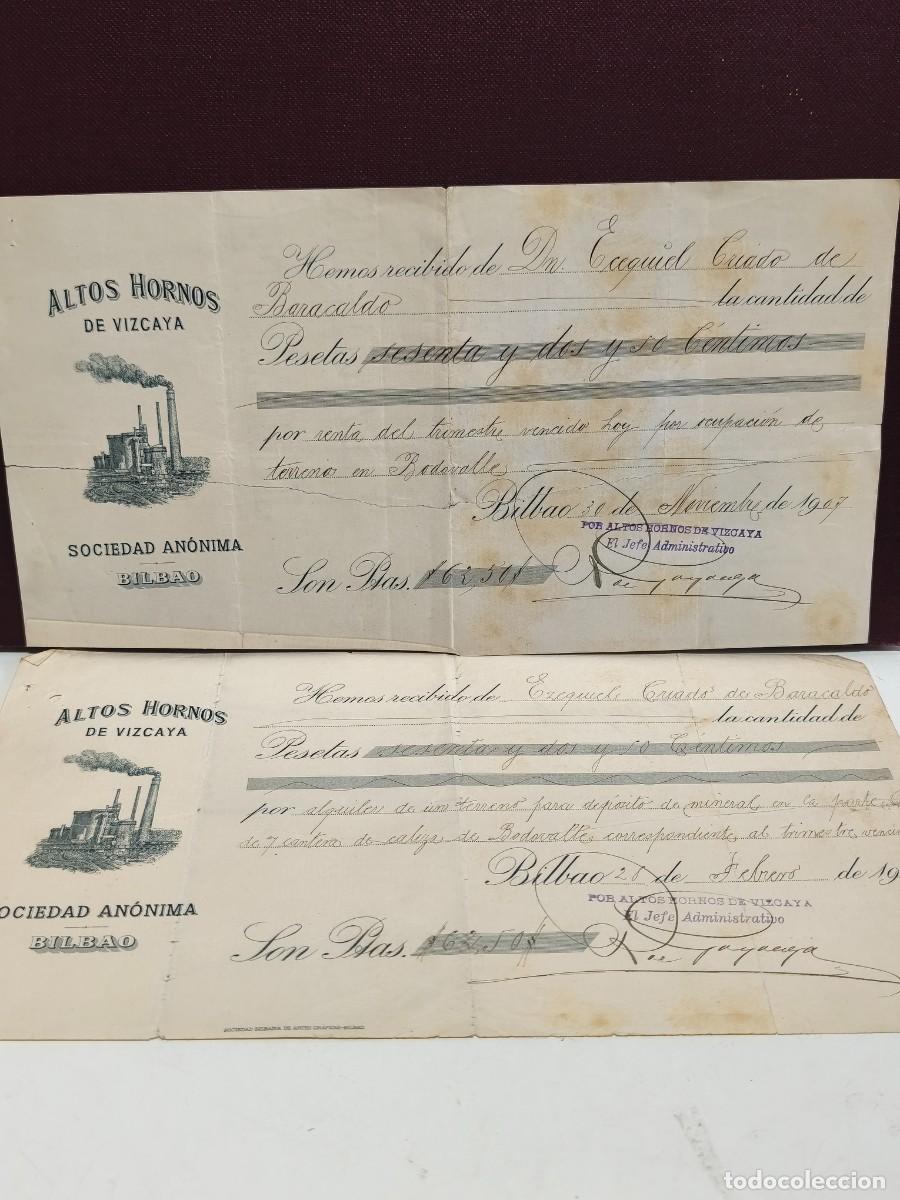 ALTOS HORNOS
DE VIZCAYA
SOCIEDAD ANÓNIMA
BILBAO
Hemos recibido de Dn. Ecequiel Criado de
Baracaldo la cantidad de
Pesetas sesenta y dos y 50 Céntimos
por renta del trimestre vencido hoy por ocupación de
terrenos en Bodovalle
Bilbao 30 de Noviembre de 1907
POR ALTOS HORNOS DE VIZCAYA
El Jefe Administrativo
Son Ptas. #62,50#
ALTOS HORNOS
DE VIZCAYA
OCIEDAD ANÓNIMA
BILBAO
Hemos recibido de Ezequiel Criado de Baracaldo
la cantidad de
Pesetas sesenta y dos y 50 Céntimos
por alquiler de un terreno para depósito de mineral en la parte
de cantera de caliza de Bodovalle correspondiente al trimestre venci
Bilbao 28 de Febrero de 19
POR ALTOS HORNOS DE VIZCAYA
El Jefe Administrativo
Son Ptas. #62,50#
SOCIEDAD BILBAINA DE ARTES GRAFICAS-BILBAO
todocoleccion